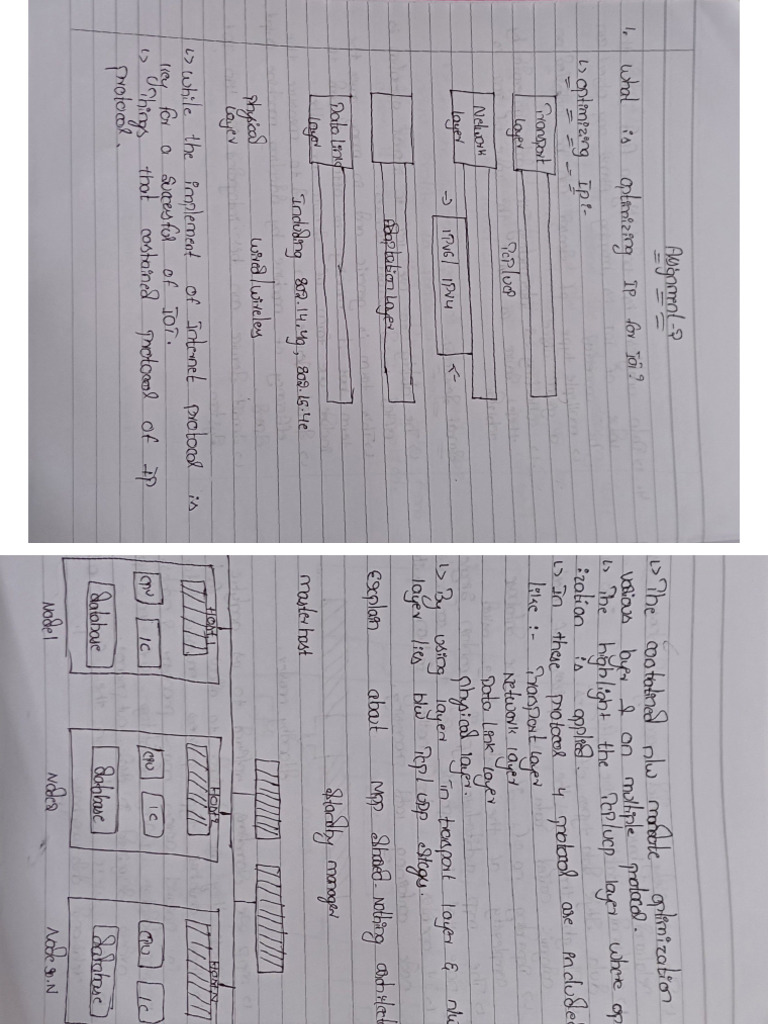 Assignment-2
1. what is optimizing IP for IoT?
↳ optimizing IP:-
Transport
layer
Tcp/UCP
Network
layer
→ IPV6/ IPV4 ←
Adaptation layer
Data Link
layer
Including 802.14.4g, 802.15.4e
physical
layer
wired/wireless
↳ while the implement of Internet protocol is
key for a successful of IOT.
↳ things that costained protocol of IP
protocol.
↳ The costatined n/w mandate optimization
various layer & on multiple protocol.
↳ The highlight the Tcp/ucp layer where op
ization is applied.
↳ In these protocol 4 protocol are include
like :- Transport layer
Network layer
Data Link layer
physical layer.
↳ By using layer in transport layer & n/w
layer lies b/w Tcp/UDP stages.
Explain about MPP shared-nothing
master host
standby manager
HOST1
CPU
IC
Database
Node1
HOST2
CPU
IC
Database
Node2
HOSTN
CPU
IC
Database